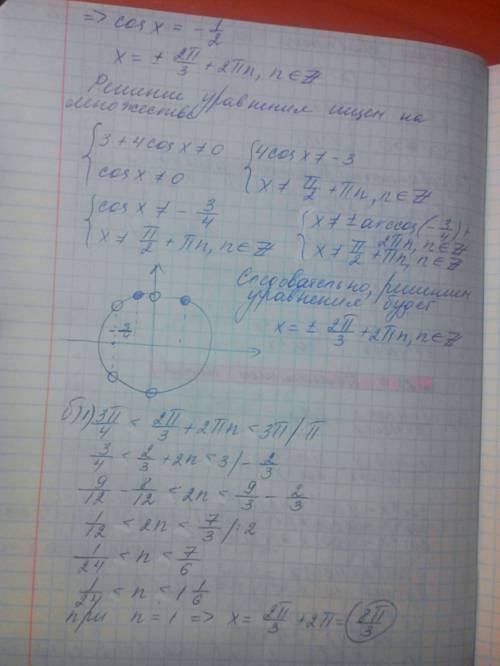 => cos x = - 1/2
x = ± 2π/3 + 2πn, n ∈ Z
Решение уравнения ищем на
множестве
{ 3 + 4cos x ≠ 0 { 4cos x ≠ -3
{ cos x ≠ 0 { x ≠ π/2 + πn, n ∈ Z
{ cos x ≠ - 3/4 { x ≠ ± arccos(-3/4) + 2πn, n ∈ Z
{ x ≠ π/2 + πn, n ∈ Z { x ≠ π/2 + πn, n ∈ Z
Следовательно, решением
уравнения будет
x = ± 2π/3 + 2πn, n ∈ Z
- 3/4
б) 1) 3π/4 < 2π/3 + 2πn < 3π /: π
3/4 < 2/3 + 2n < 3 /- 2/3
9/12 - 8/12 < 2n < 9/3 - 2/3
1/12 < 2n < 7/3 /: 2
1/24 < n < 7/6
1/24 < n < 1 1/6
при n = 1 => x = 2π/3 + 2π =